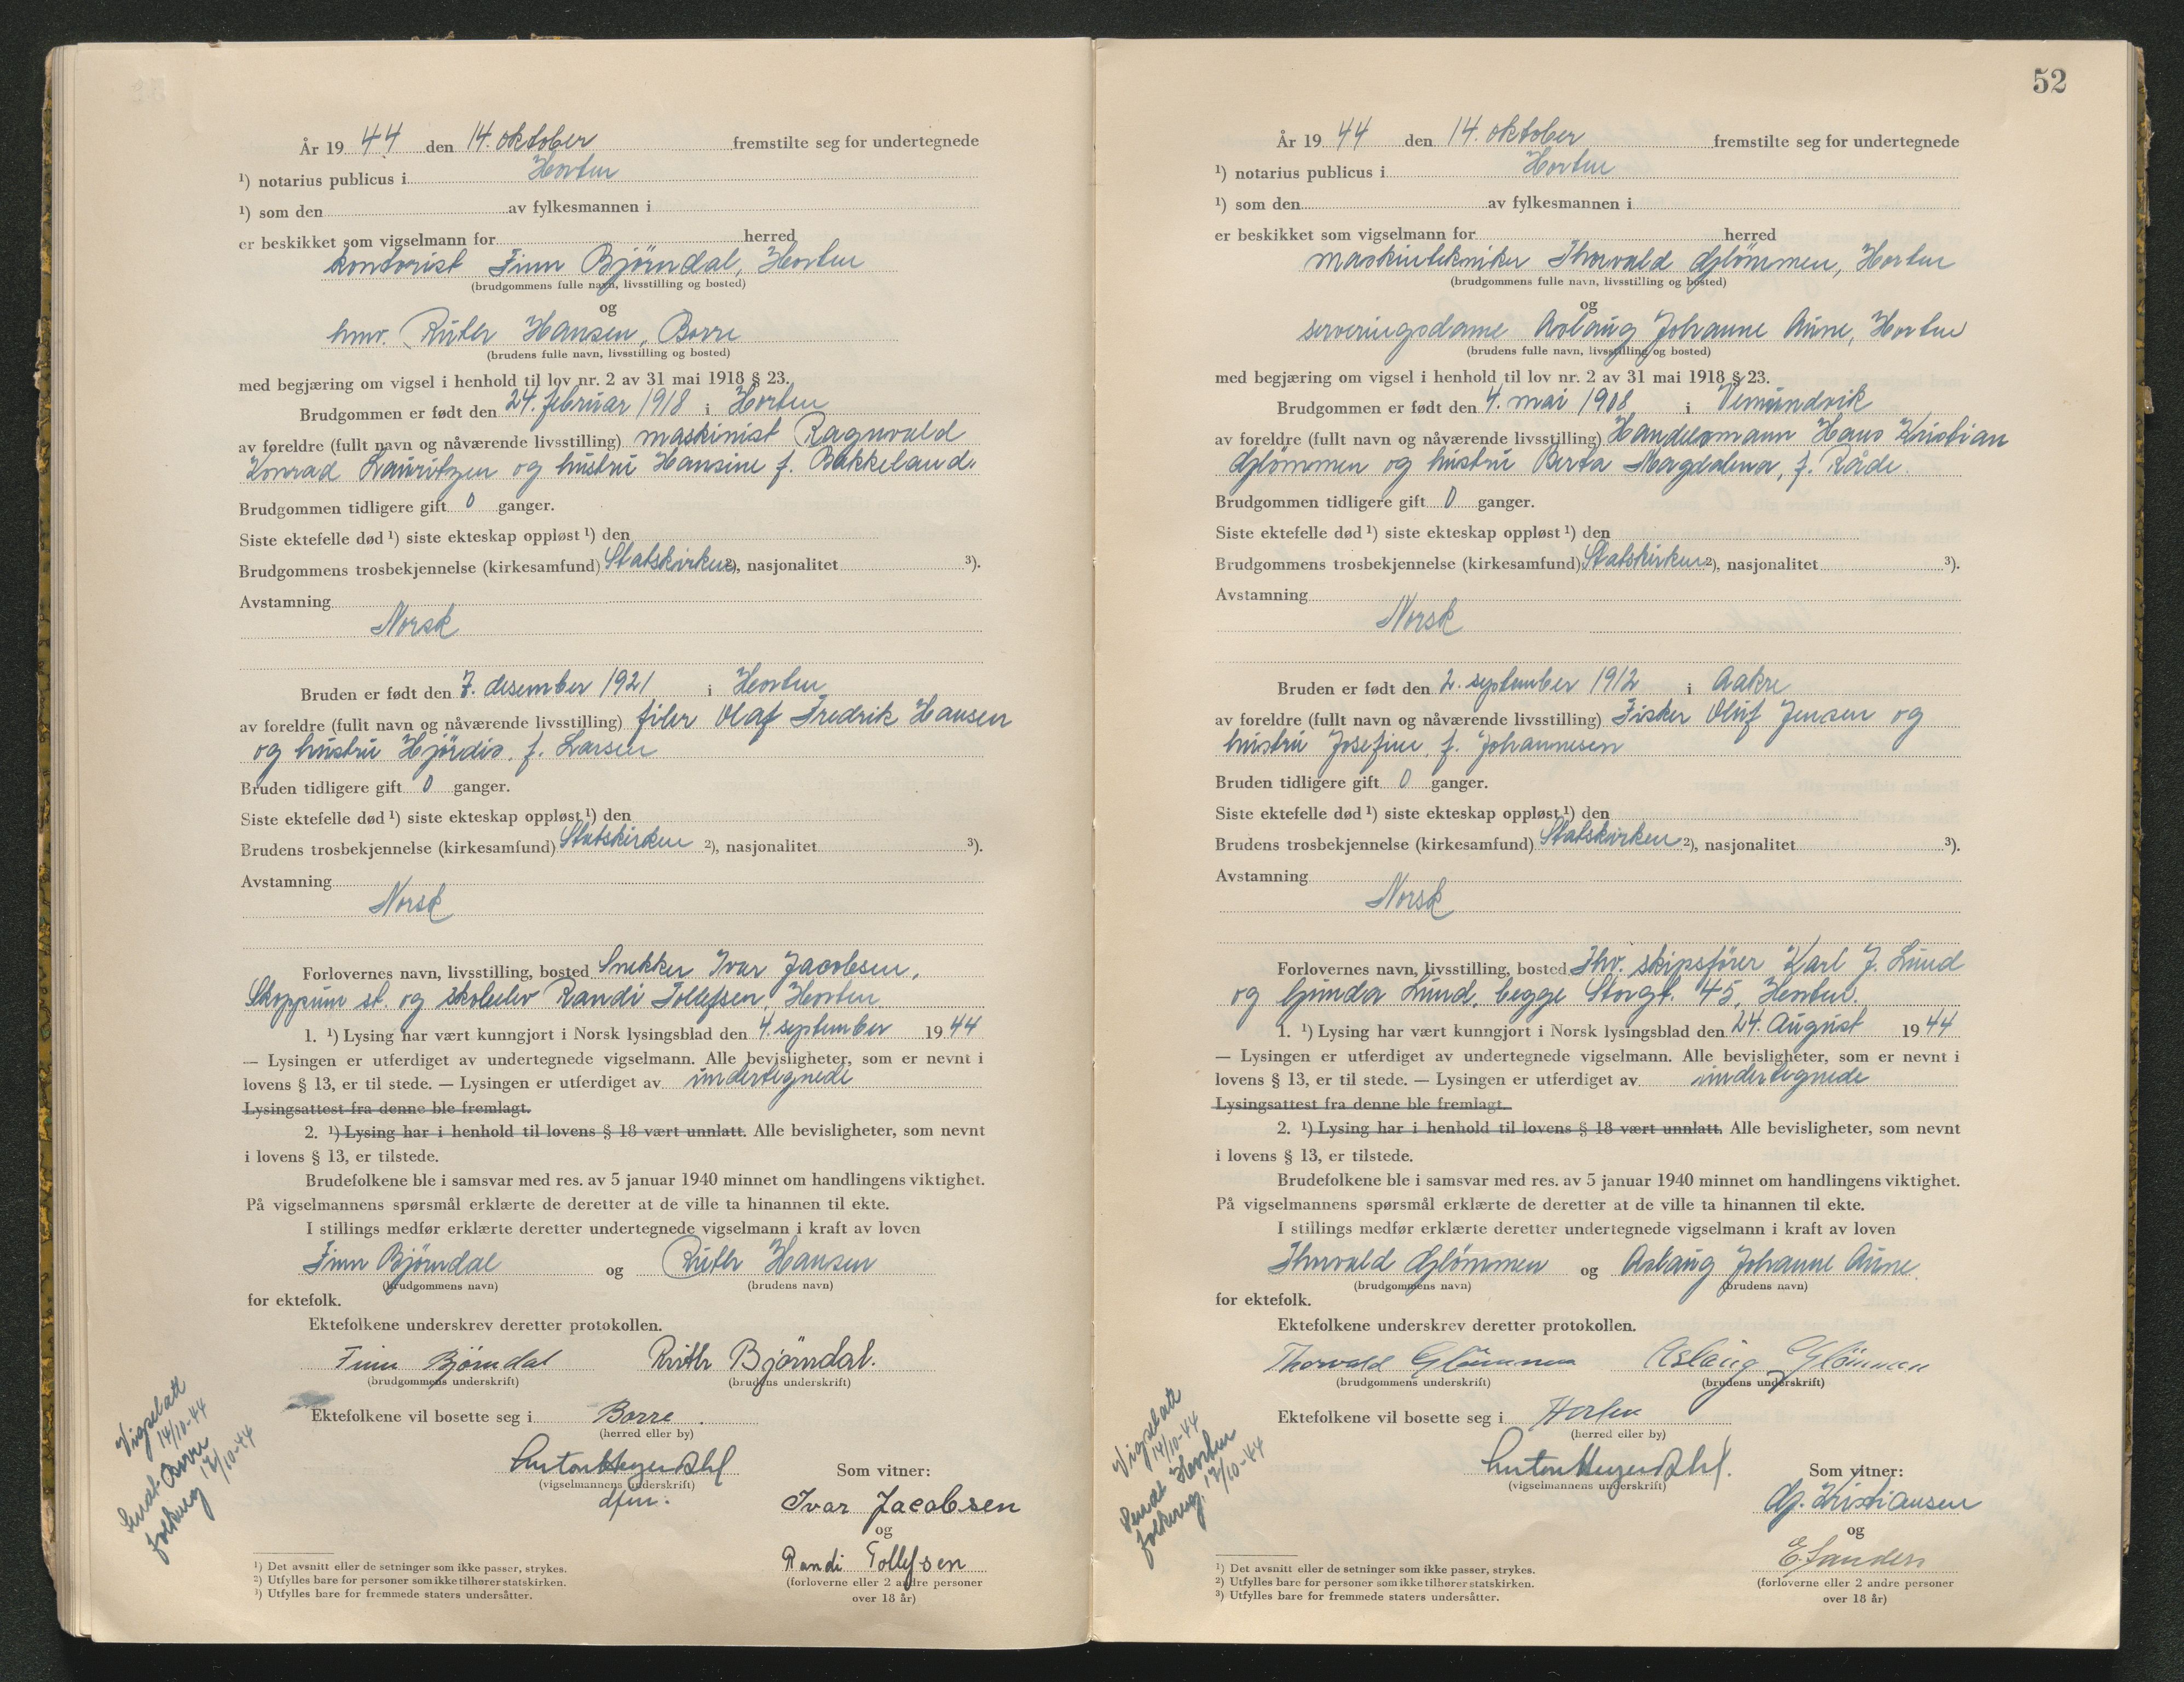 År 19 44 den 14. oktober fremstilte seg for undertegnede
¹) notarius publicus i Horten
¹) som den av fylkesmannen i
er beskikket som vigselmann for herred
kontorist Finn Björndal, Horten
(brudgommens fulle navn, livsstilling og bosted)
og
hmv. Ruth Hansen, Borre
(brudens fulle navn, livsstilling og bosted)
med begjæring om vigsel i henhold til lov nr. 2 av 31 mai 1918 § 23.
Brudgommen er født den 24. februar 1918 i Horten
av foreldre (fullt navn og nåværende livsstilling) maskinist Ragnvald
Konrad Lauritzen og hustru Hansine f. Bakkeland.
Brudgommen tidligere gift 0 ganger.
Siste ektefelle død ¹) siste ekteskap oppløst ¹) den
Brudgommens trosbekjennelse (kirkesamfund) Statskirken ²), nasjonalitet ³).
Avstamning
Norsk
Bruden er født den 7. desember 1921 i Horten
av foreldre (fullt navn og nåværende livsstilling) filer Olaf Fredrik Hansen
og hustru Hjördis, f. Larsen
Bruden tidligere gift 0 ganger.
Siste ektefelle død ¹) siste ekteskap oppløst ¹) den
Brudens trosbekjennelse (kirkesamfund) Statskirken ²), nasjonalitet ³).
Avstamning
Norsk
Forlovernes navn, livsstilling, bosted Snekker Ivar Jacobsen,
Skoppum st. og skoleelev Randi Tollefsen, Horten
1. ¹) Lysing har vært kunngjort i Norsk lysingsblad den 4. september 19 44
— Lysingen er utferdiget av undertegnede vigselmann. Alle bevisligheter, som er nevnt i
lovens § 13, er til stede. — Lysingen er utferdiget av undertegnede
Lysingsattest fra denne ble fremlagt.
2. ¹) Lysing har i henhold til lovens § 18 vært unnlatt. Alle bevisligheter, som nevnt
i lovens § 13, er tilstede.
Brudefolkene ble i samsvar med res. av 5 januar 1940 minnet om handlingens viktighet.
På vigselmannens spørsmål erklærte de deretter at de ville ta hinannen til ekte.
I stillings medfør erklærte deretter undertegnede vigselmann i kraft av loven
Finn Björndal og Ruth Hansen
(brudgommens navn) (brudens navn)
for ektefolk.
Ektefolkene underskrev deretter protokollen.
Finn Bjørndal Ruth Bjørndal.
(brudgommens underskrift) (brudens underskrift)
Ektefolkene vil bosette seg i Borre.
(herred eller by)
Anton Meyer Dahl
(vigselmannens underskrift)
dfm.
Som vitner:
Ivar Jacobsen
og
Randi Tollefsen
(forloverne eller 2 andre personer
over 18 år)
Vigselatt
14/10-44
Sendt Borre
folkereg 17/10-44
¹) Det avsnitt eller de setninger som ikke passer, strykes.
²) Utfylles bare for personer som ikke tilhører statskirken.
³) Utfylles bare for fremmede staters undersåtter.
52
År 19 44 den 14. oktober fremstilte seg for undertegnede
¹) notarius publicus i Horten
¹) som den av fylkesmannen i
er beskikket som vigselmann for herred
maskintekniker Thorvald Glömmen, Horten
(brudgommens fulle navn, livsstilling og bosted)
og
serveringsdame Aslaug Johanne Aune, Horten
(brudens fulle navn, livsstilling og bosted)
med begjæring om vigsel i henhold til lov nr. 2 av 31 mai 1918 § 23.
Brudgommen er født den 4. mai 1908 i Vemundvik
av foreldre (fullt navn og nåværende livsstilling) Handelsmann Hans Kristian
Glömmen og hustru Berta Magdalena, f. Råde.
Brudgommen tidligere gift 0 ganger.
Siste ektefelle død ¹) siste ekteskap oppløst ¹) den
Brudgommens trosbekjennelse (kirkesamfund) Statskirken ²), nasjonalitet ³).
Avstamning
Norsk
Bruden er født den 2. september 1912 i Aakre
av foreldre (fullt navn og nåværende livsstilling) Fisker Oluf Jensen og
hustru Josefine, f. Johannesen
Bruden tidligere gift 0 ganger.
Siste ektefelle død ¹) siste ekteskap oppløst ¹) den
Brudens trosbekjennelse (kirkesamfund) Statskirken ²), nasjonalitet ³).
Avstamning
Norsk
Forlovernes navn, livsstilling, bosted Fhv. skipsfører Karl J. Lund
og Gunda Lund, begge Storgt. 45, Horten.
1. ¹) Lysing har vært kunngjort i Norsk lysingsblad den 24. August 19 44
— Lysingen er utferdiget av undertegnede vigselmann. Alle bevisligheter, som er nevnt i
lovens § 13, er til stede. — Lysingen er utferdiget av undertegnede
Lysingsattest fra denne ble fremlagt.
2. ¹) Lysing har i henhold til lovens § 18 vært unnlatt. Alle bevisligheter, som nevnt
i lovens § 13, er tilstede.
Brudefolkene ble i samsvar med res. av 5 januar 1940 minnet om handlingens viktighet.
På vigselmannens spørsmål erklærte de deretter at de ville ta hinannen til ekte.
I stillings medfør erklærte deretter undertegnede vigselmann i kraft av loven
Thorvald Glömmen og Aslaug Johanne Aune.
(brudgommens navn) (brudens navn)
for ektefolk.
Ektefolkene underskrev deretter protokollen.
Thorvald Glömmen Aslaug Glömmen
(brudgommens underskrift) (brudens underskrift)
Ektefolkene vil bosette seg i Horten
(herred eller by)
Anton Meyer Dahl.
(vigselmannens underskrift)
Som vitner:
Kristiansen
og
E. Sanders
(forloverne eller 2 andre personer
over 18 år)
Vigselatt
14/10-44
Sendt Horten
folkereg. 17/10-44
¹) Det avsnitt eller de setninger som ikke passer, strykes.
²) Utfylles bare for personer som ikke tilhører statskirken.
³) Utfylles bare for fremmede staters undersåtter.